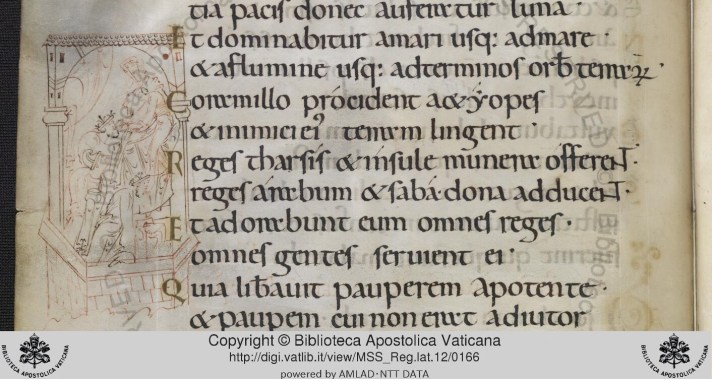 tia pacis donec auferetur luna·
Et dominabitur amari usq: admare·
& aflumine usq: adterminos orb̄ terrarꝝ·
Coram illo prócident aethýopes
& inimici ei᾽ terram lingent·
Reges tharsis & insule munera offereɴᴛ·
reges arabum & sabá·dona adduceɴᴛ·
Et adorabunt eum omnes reges·
omnes gentes seruient ei·
Quia lib̄auit pauperem apotente·
& paupem cui non erat adiutor
Copyright © Biblioteca Apostolica Vaticana
http://digi.vatlib.it/view/MSS_Reg.lat.12/0166
powered by AMLAD·NTT DATA
BIBLIOTECA APOSTOLICA VATICANA
BIBLIOTECA APOSTOLICA VATICANA